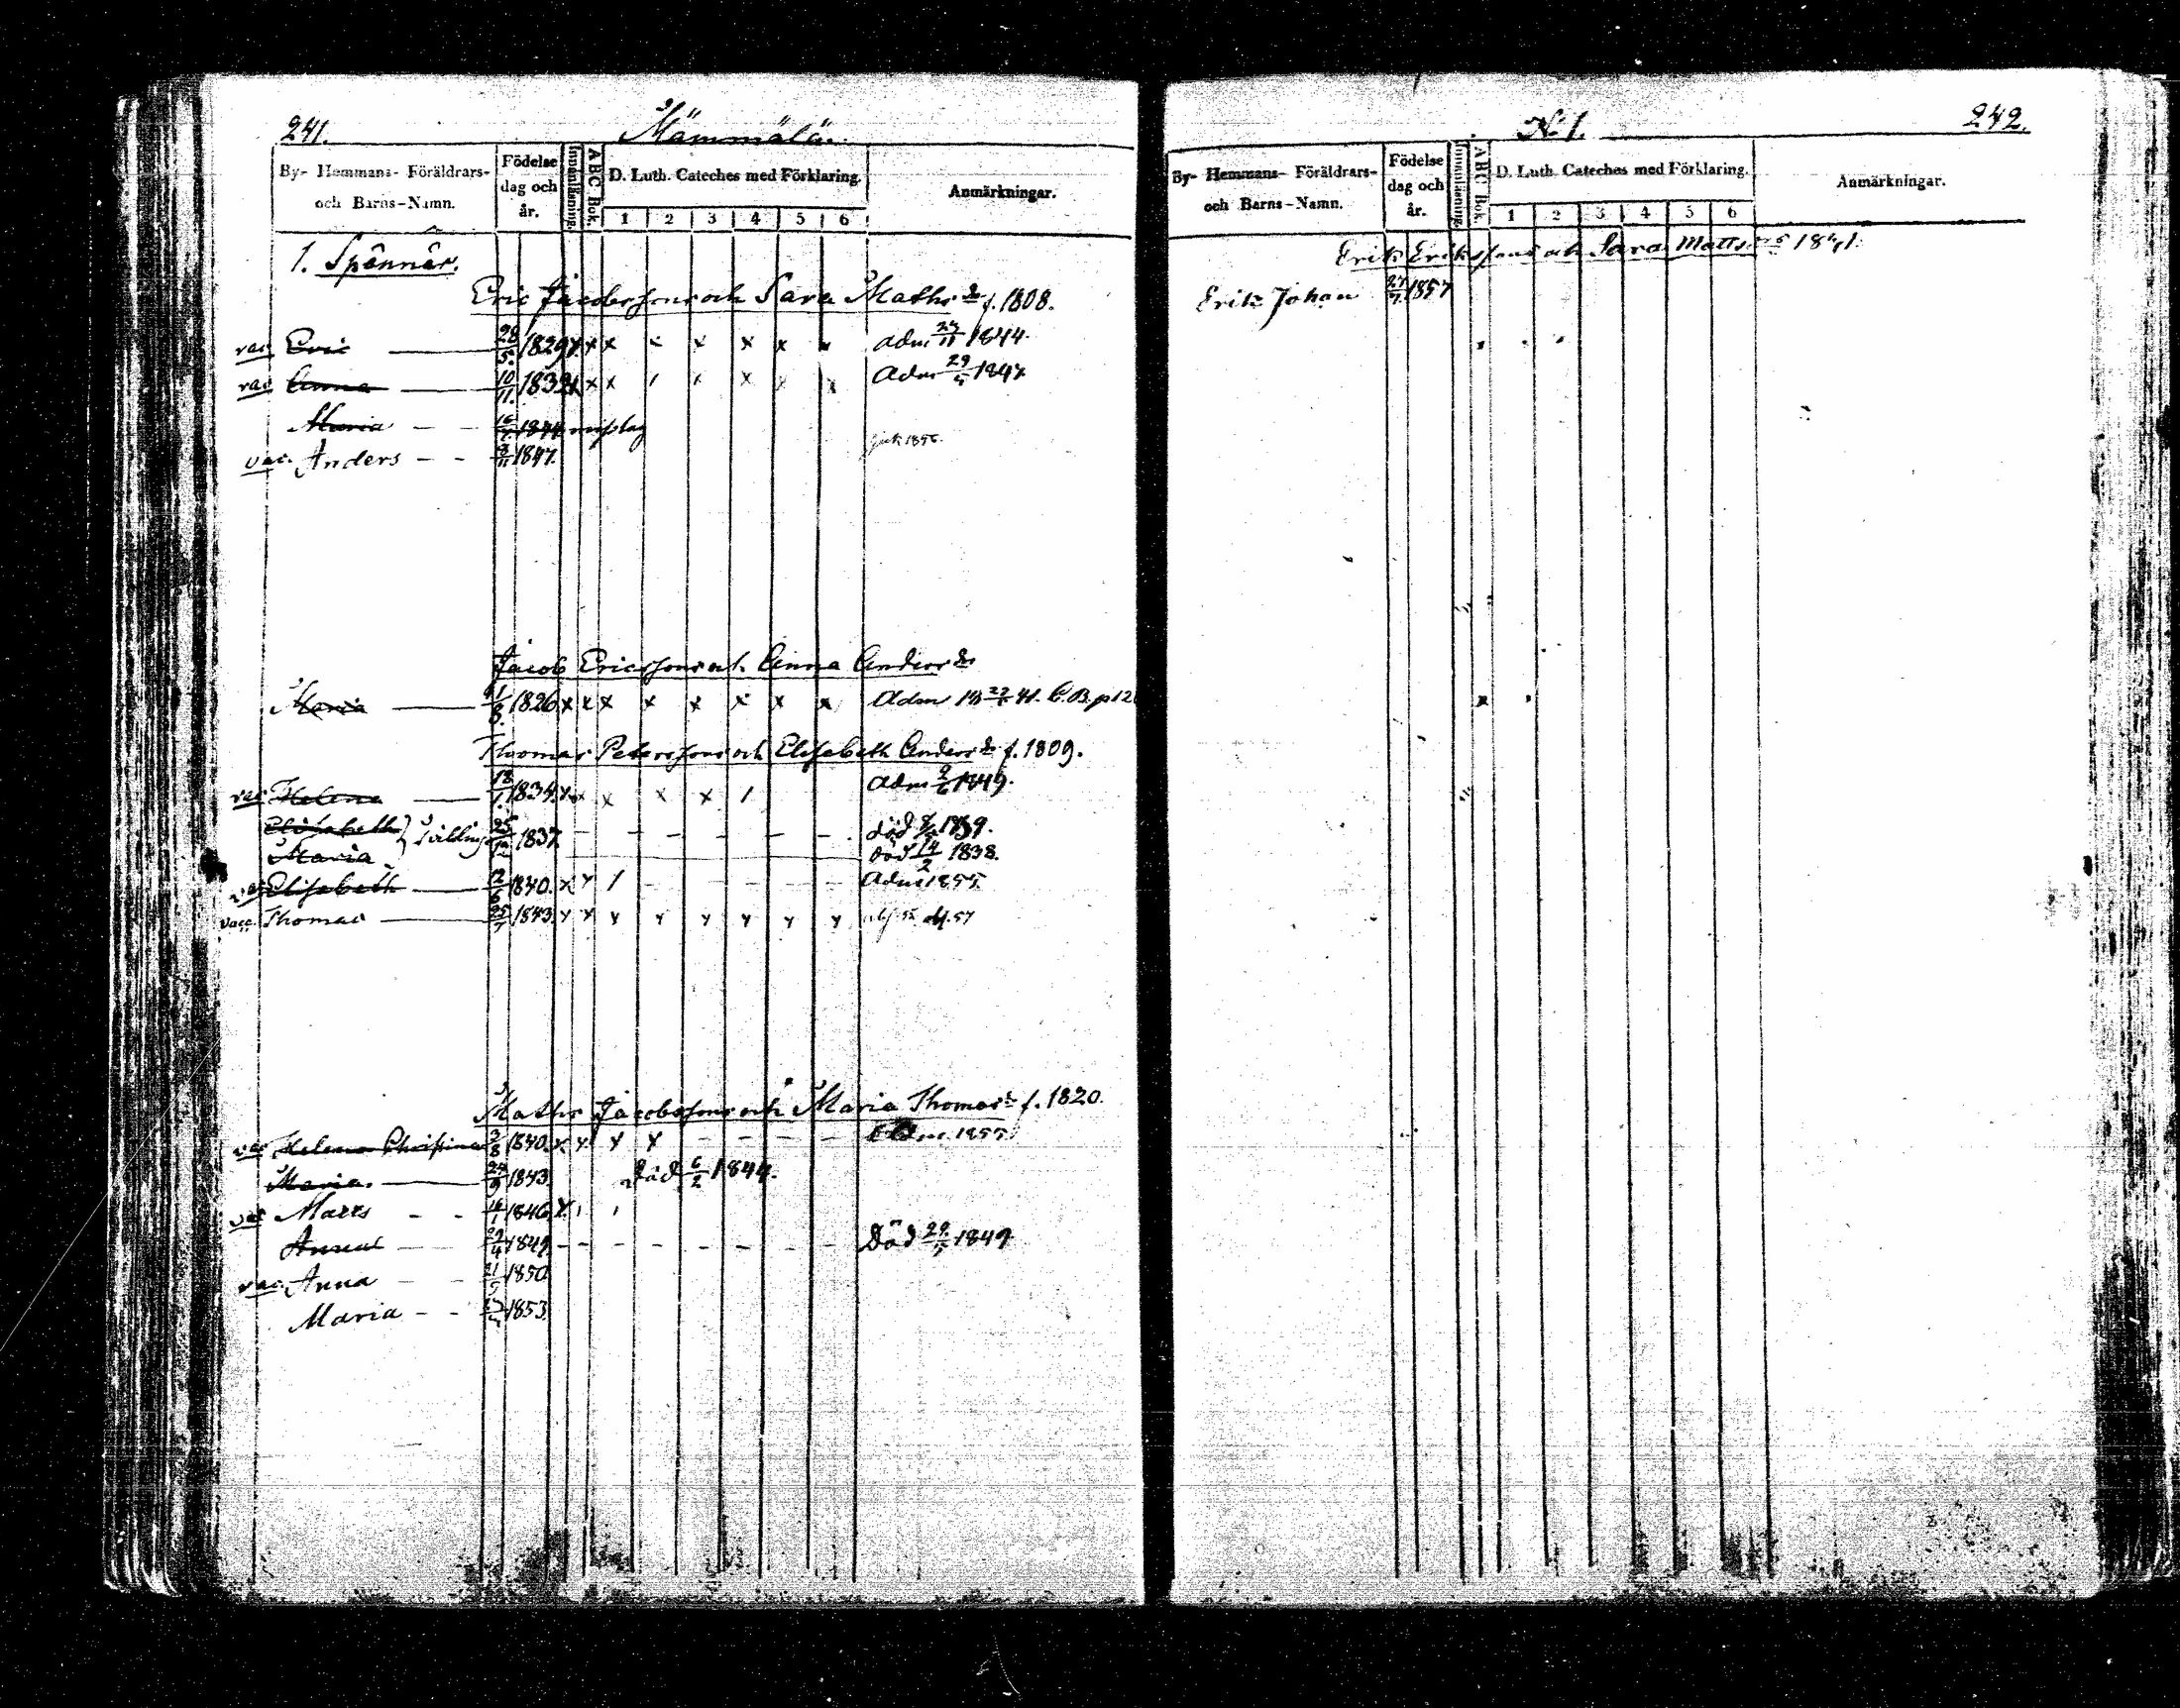 241. Mämmälä.
By- Hemmans- Föräldrars- och Barns-Namn. Födelse dag och år. Innanläsning. ABC Bok. D. Luth. Cateches med Förklaring. Anmärkningar.
1 2 3 4 5 6
1. Spännär.
Eric Jacobssons och Sara Mathsdr f. 1808.
vac Eric 28/5. 1829 x x x x x x adm 1844.
vac Anna 10/11. 1832 x x x x x Adm 29/5 1847
Maria 1844
vac. Anders 1847.
Jacob Ericssons och Anna Andersdr
Maria 1/8. 1826 x x x x x x x x Adm 41. C.B. p 12
Thomas Peterssons och Elisabeth Andersdr f. 1809.
vac Helena 18/1. 1834. x x x x x / Adm 1849.
Elisabeth } Tvillingar 1837. död
Maria död 14/2 1838.
vac Elisabeth 12/6 1840. x x / Adm 1855.
vacc. Thomas 1843. x x x x x x x x
Maths Jacobssons och Maria Thomasdr f. 1820.
vac Helena Christina 3/8 1840. x x x x Adm. 1855.
Maria. 24/9 1843. död 6/2 1844.
vac Matts 1846. x
Anna 1849. Död 1849
vac. Anna 1850
Maria 1853.
No 1. 242.
By- Hemmans- Föräldrars- och Barns-Namn. Födelse dag och år. Innanläsning. ABC Bok. D. Luth. Cateches med Förklaring. Anmärkningar.
1 2 3 4 5 6
Erik Erikssons och Sara Matts
Erik Johan 1857